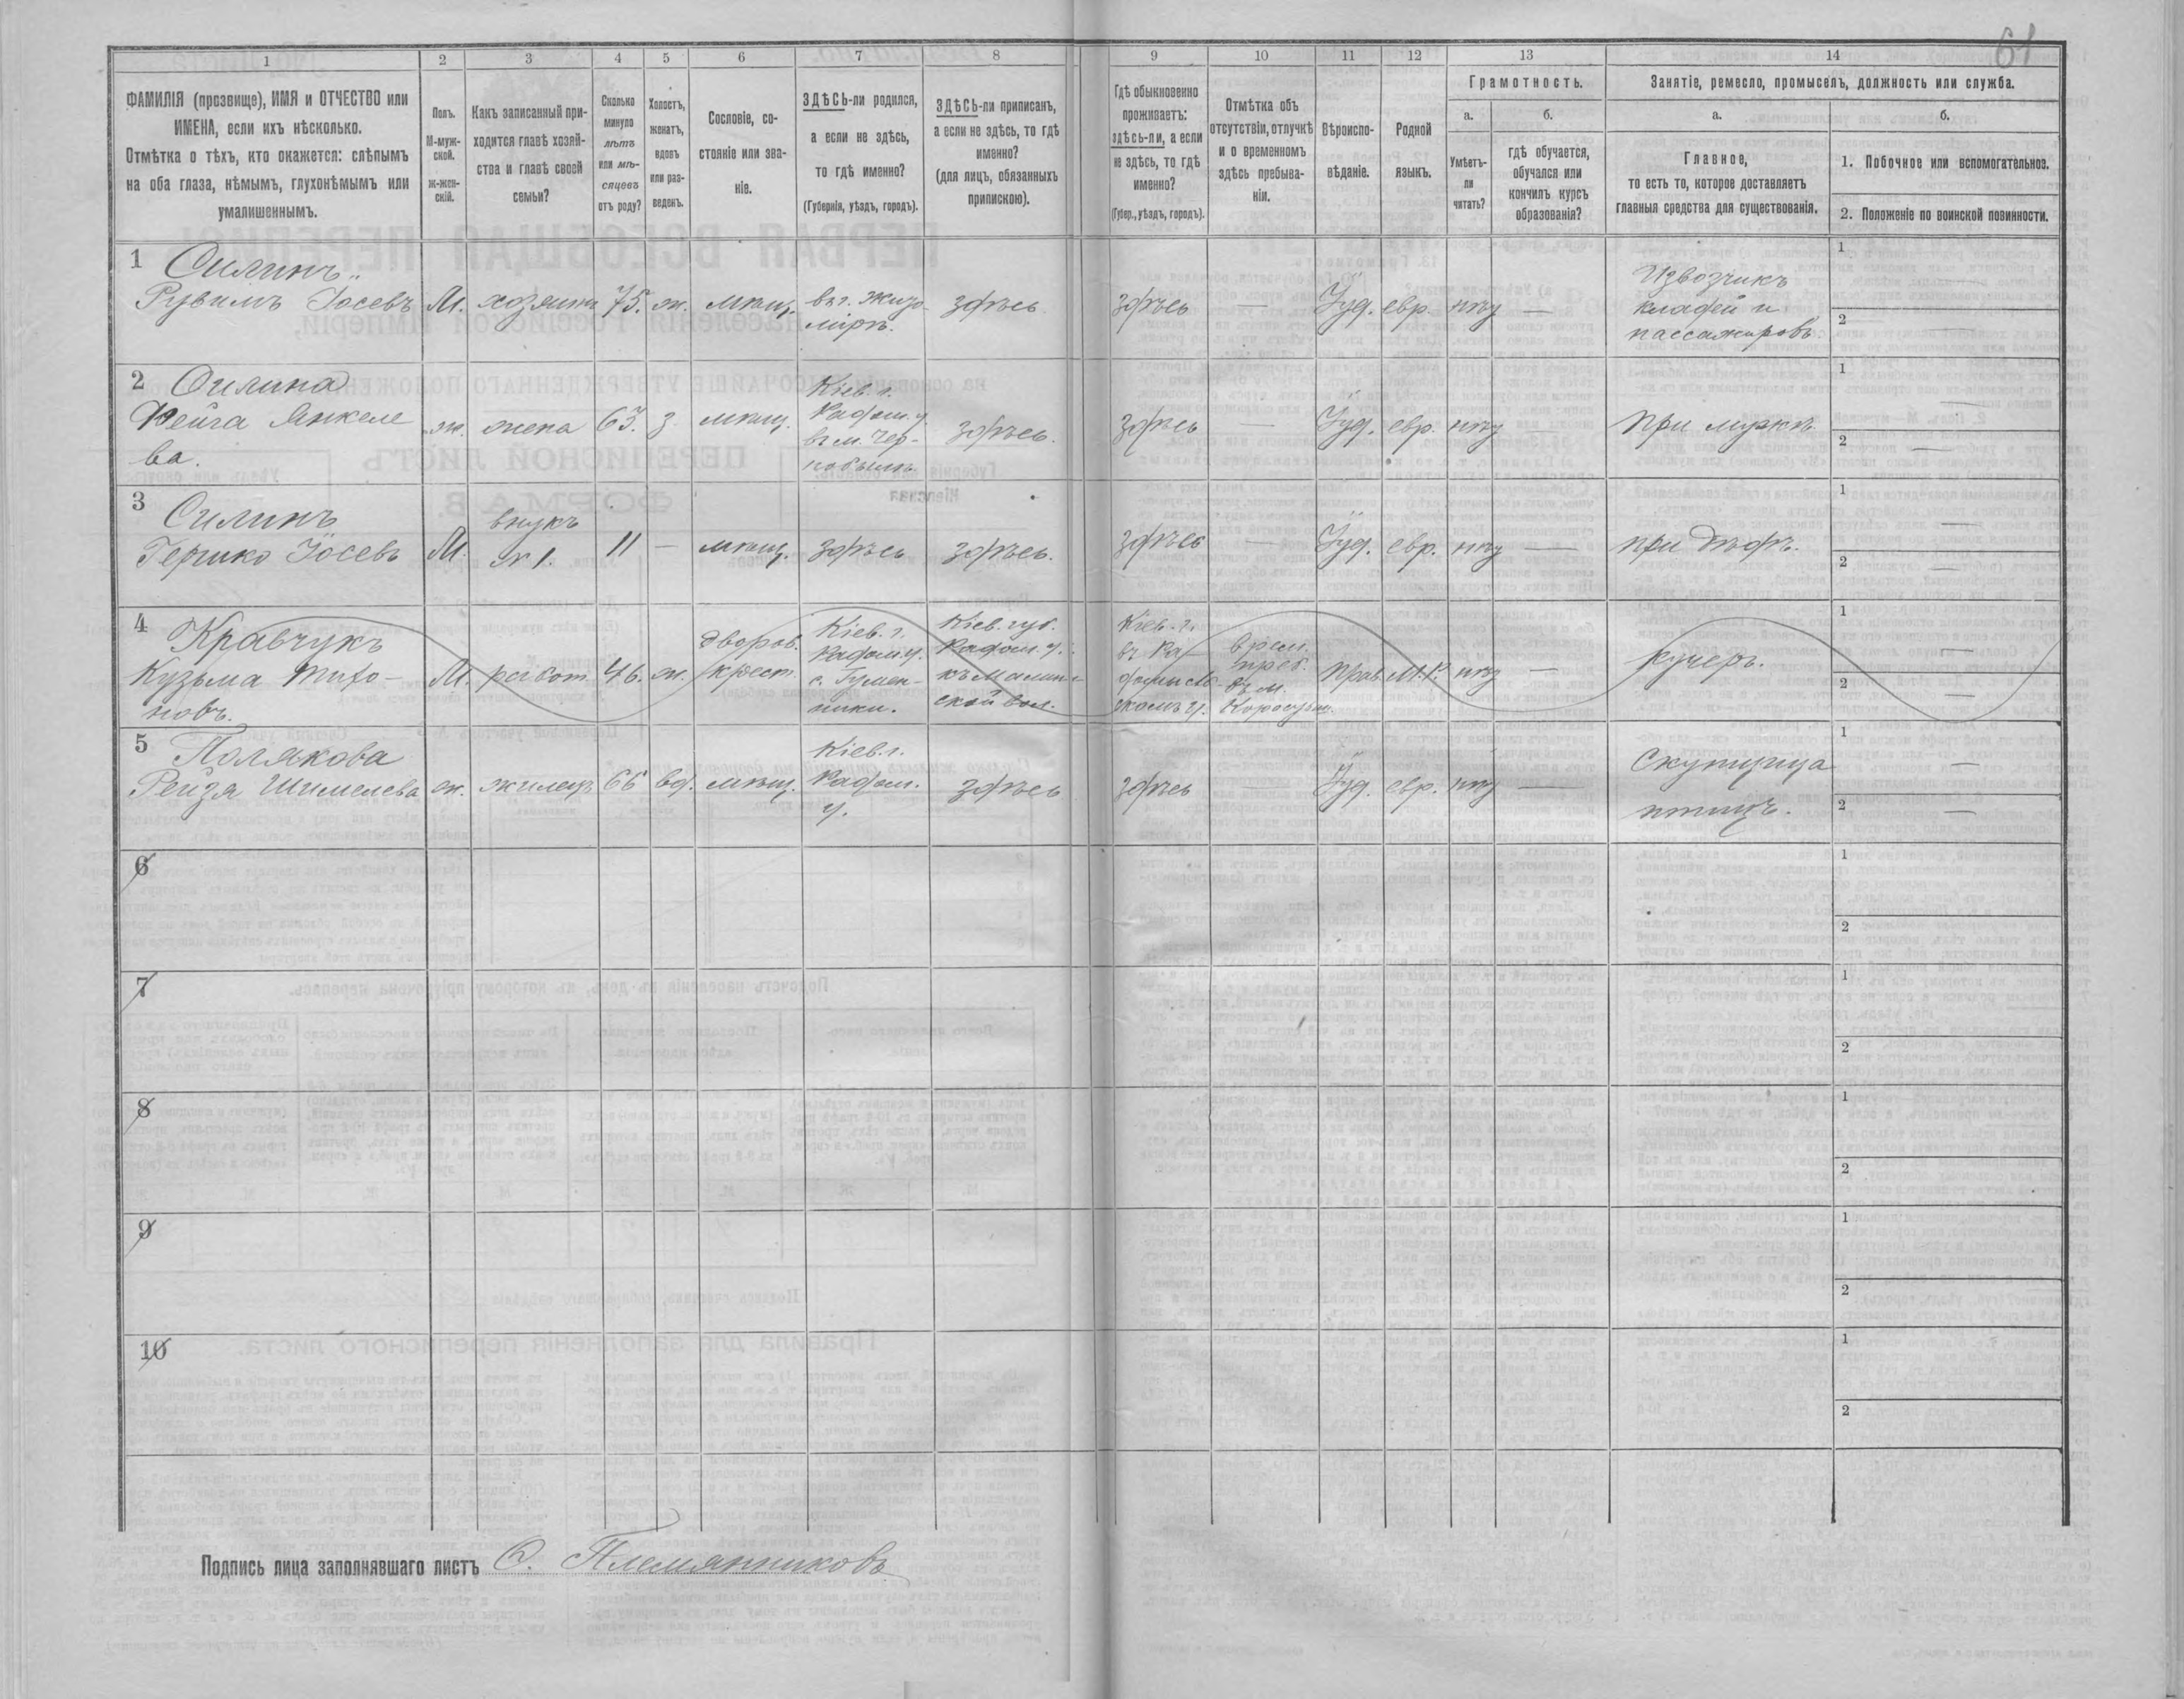 61
1 2 3 4 5 6 7 8 9 10 11 12 13 14
ФАМИЛІЯ (прозвище), ИМЯ и ОТЧЕСТВО или
ИМЕНА, если ихъ нѣсколько.
Отмѣтка о тѣхъ, кто окажется: слѣпымъ
на оба глаза, нѣмымъ, глухонѣмымъ или
умалишеннымъ.
Полъ.
М-муж-
ской.
Ж-жен-
скій.
Какъ записанный при-
ходится главѣ хозяй-
ства и главѣ своей
семьи?
Сколько
минуло
лѣтъ
или мѣ-
сяцевъ
отъ роду?
Холостъ,
женатъ,
вдовъ
или раз-
веденъ.
Сословіе, со-
стояніе или зва-
ніе.
ЗДѢСЬ-ли родился,
а если не здѣсь,
то гдѣ именно?
(Губернія, уѣздъ, городъ).
ЗДѢСЬ-ли приписанъ,
а если не здѣсь, то гдѣ
именно?
(для лицъ, обязанныхъ
припискою).
Гдѣ обыкновенно
проживаетъ:
здѣсь-ли, а если
не здѣсь, то гдѣ
именно?
(Губер., уѣздъ, городъ).
Отмѣтка объ
отсутствіи, отлучкѣ
и о временномъ
здѣсь пребыва-
ніи.
Вѣроиспо-
вѣданіе.
Родной
языкъ.
Грамотность.
а.
Умѣетъ-
ли
читать?
б.
гдѣ обучается,
обучался или
кончилъ курсъ
образованія?
Занятіе, ремесло, промыселъ, должность или служба.
а.
Главное,
то есть то, которое доставляетъ
главныя средства для существованія.
б.
1. Побочное или вспомогательное.
2. Положеніе по воинской повинности.
1 Силинъ
Рувимъ Іосевъ М. хозяинъ 75. ж. мѣщ. въ г. Жито-
мірѣ. здѣсь здѣсь — Іуд. евр. нѣт —
Извозчикъ
кладей и
пассажировъ.
1 —
2 —
2 Силина
Фейга Янкеле
ва. ж. жена 63. з. мѣщ.
Кіев. г.
Радом. у.
въ м. Чер-
нобылѣ.
здѣсь. здѣсь — Іуд. евр. нѣт —
при мужѣ
1 —
2 —
3 Силинъ
Гершко Іосевъ М. внукъ
№ 1. 11 — мѣщ. здѣсь здѣсь. здѣсь — Іуд. евр. нѣт —
при дѣдѣ.
1 —
2 —
4 Кравчукъ
Кузьма Тихо-
новъ. М. работ. 46. ж.
дворов.
крест.
Кіев. г.
Радом. у.
Кіев. губ.
Радом. у.
къ Малин-
ской вол.
Кіев. г.
въ Ра-
домысль-
скомъ у.
врем.
преб.
въ м.
прав. М.Р. нѣт —
кучеръ.
1
2
5 Полякова
Рейзя Шимелева ж. жилец 66 вд. мѣщ.
Кіев. г.
Радом.
у.
здѣсь здѣсь — Іуд. евр. нѣт —
Скупщица
птицъ.
1 —
2 —
6
1
2
7
1
2
8
1
2
9
1
2
10
1
2
Подпись лица заполнявшаго листъ С. Племянниковъ